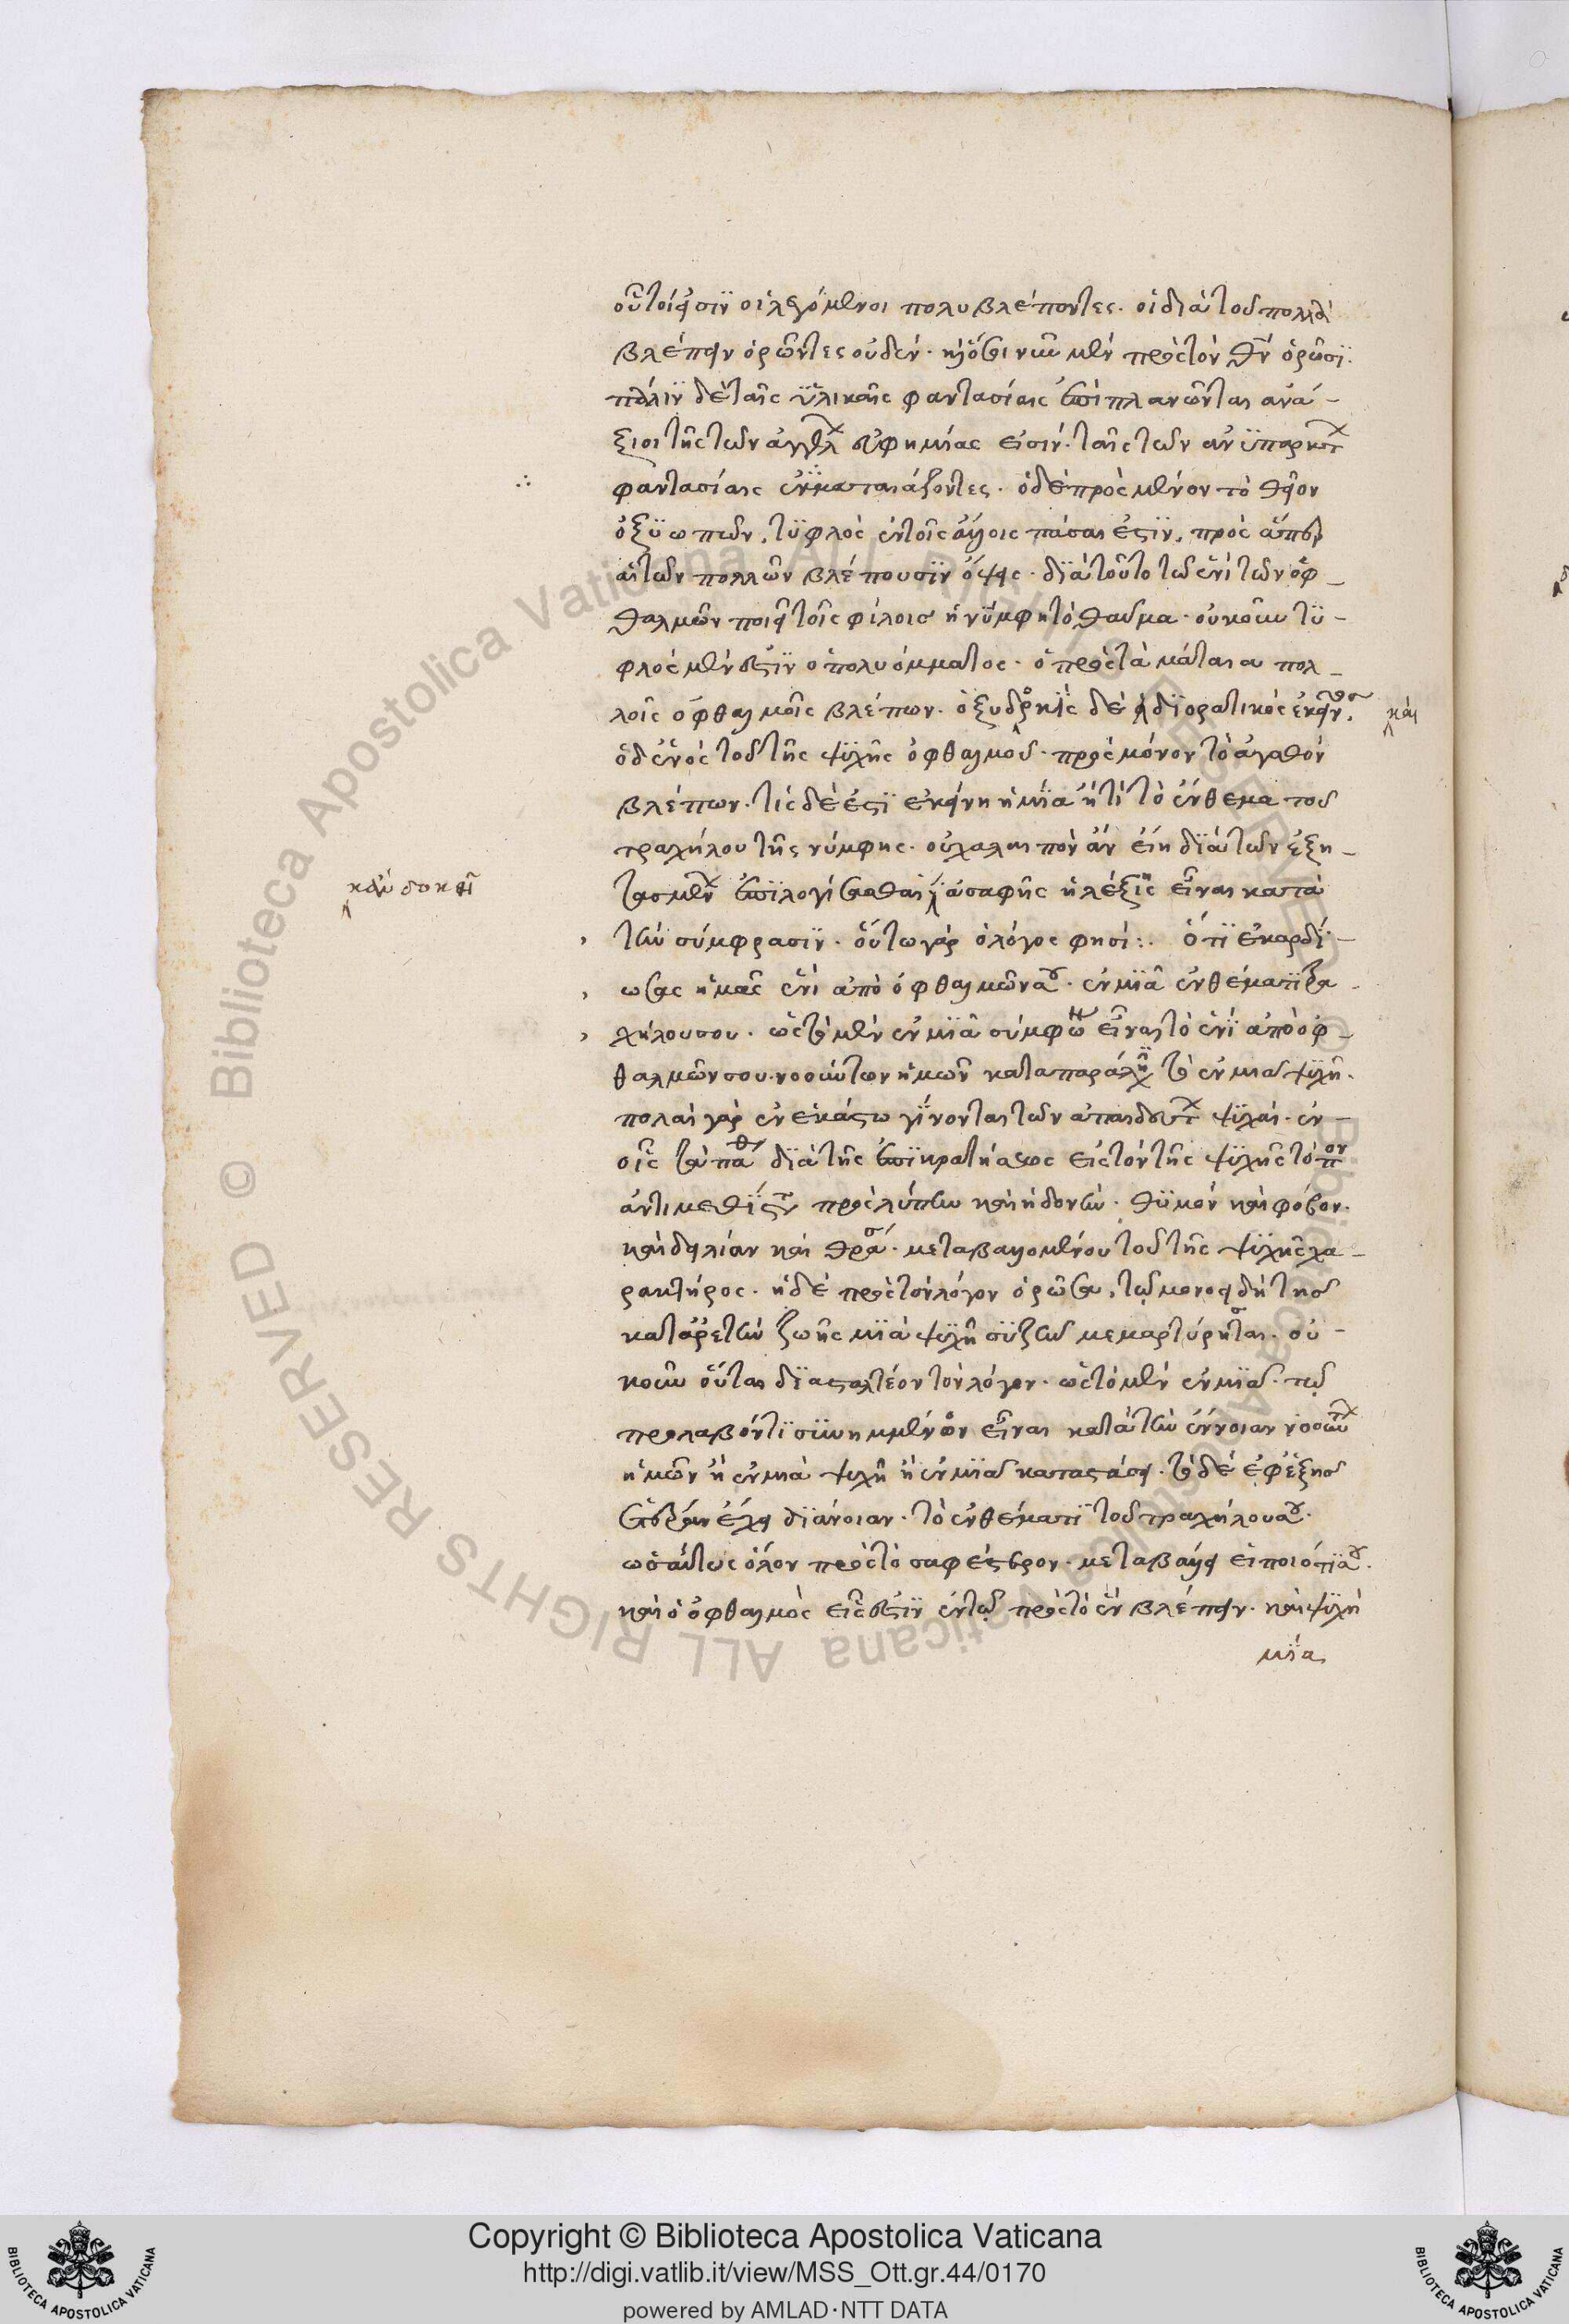 οὗτοί εἰσϊν οἱ λεγόμενοι πολυβλέποντες. οἱ διὰ τοῦ πολλὰ
βλέπειν ὁρῶντες οὐδέν. καὶ ὅσοι νῦν μὲν πρὸς τὸν θν ὁρῶσϊ.
πάλϊν δὲ ταῖς ϋλικαῖς φαντασίαις ἐπϊπλανῶνται ανά-
ξιοι τῆς τῶν ἀγγελ εὐφημίας εἰσίν. ταῖς τῶν ανϋπαρκτ
φαντασίαις ἐμματαιάζοντες. ὁ δὲ πρὸς μόνον τὸ θεῖον
ὀξϋωπῶν, τϋφλὸς ἐν τοῖς ἄλλοις πᾶσαι ἐςϊν, πρὸς ἅπερ
αἱ τῶν πολλῶν βλέπουσϊν ὄψεις. δϊὰ τοῦτο τῶ ἑνὶ τῶν ὀφ-
θαλμῶν ποιεῖ τοῖς φίλοις ἡ νϋμφη τὸ θαῦμα. οὐκοῦν τϋ-
φλὸς μέν ἐςϊν ὁ πολυόμματος. ὁ πρὸς τὰ μάταια πολ-
λοῖς ὀφθαλμοῖς βλέπων. ὀξυδρκὴς δὲ δϊορατικὸς ἐκεῖνος,
καὶ
ὁ δ' ἑνὸς τοῦ τῆς ψϋχῆς ὀφθαλμοῦ. πρὸς μόνον τὸ ἀγαθὸν
βλέπων. τίς δὲ ἐςϊ ἐκείνη ἡ μϊα ἢ τί τὸ ἔνθεμα τοῦ
τραχήλου τῆς νύμφης. οὐ χαλαιπὸν ἂν εἴη δϊὰ τῶν ἐξη-
τασμέν ἐπϊλογίσασθαι ἀσαφὴς ἡ λέξϊς εἶναι κατὰ
κἂν δοκεῖ
τὴν σύμφρασϊν. οὕτω γὰρ ὁ λόγος φησί:. Ὅτϊ ἐκαρδί-
ωσας ἡμᾶς ἑνὶ ἀπὸ ὀφθαλμῶν. ἐν μϊᾶ ἐνθέματϊ τρα-
χήλου σου. ὡς τὸ μὲν ἐν μϊᾶ σύμφω εἶναι τὸ ἑνϊ ἀπὸ ὀφ-
θαλμῶν σου. νοούντων ἡμῶν κατὰ παραλ τὸ ἐν μιᾶ ψϋχῆ.
πολαὶ γὰρ ἐν ἑκάςω γίνονται τῶν ἀπαιδευτ ψϋχαί. ἐν
οἷς τὰ παθ δϊὰ τῆς ἐπϊκρατήσεως εἰς τὸν τῆς ψϋχῆς τόπον
ἀντιμεθϊς πρὸς λύπην καὶ ἡδονήν. θϋμὸν καὶ φόβον.
καὶ δειλίαν καὶ θρασ. μεταβαλλομένου τοῦ τῆς ψϋχῆς χα-
ρακτῆρος. ἡ δὲ πρὸς τὸν λόγον ὁρῶσα, τῶ μονοειδῆ τῆς
κατ' ἀρετὴν ζωῆς μϊὰ ψϋχῆ σϋζεῖν μεμαρτύρηται. οὐ-
κοῦν οὕτω δϊαςαλτέον τὸν λόγον. ὡς τὸ μὲν ἐν μϊᾶ. τῶ
προλαβόντϊ σϋνημμένον εἶναι κατὰ τὴν ἔννοιαν νοούντ
ἡμῶν ἢ ἐν μιᾶ ψυχῆ ἢ ἐν μϊᾶ καταςάσει. τὸ δὲ ἐφεξῆς
ἑτέραν ἔχει δϊάνοιαν. τὸ ἐνθέματϊ τοῦ τραχήλου.
ὡσαύτως ὅλον πρὸς τὸ σαφέςερον. μεταβάλλει εἰ ποιὅτϊ.
καὶ ὁ ὀφθαλμὸς εἷς ἐςϊν ἐν τῶ πρὸς τὸ ἓν βλέπειν. καὶ ψϋχὴ
μϊα
Copyright © Biblioteca Apostolica Vaticana
http://digi.vatlib.it/view/MSS_Ott.gr.44/0170
powered by AMLAD·NTT DATA